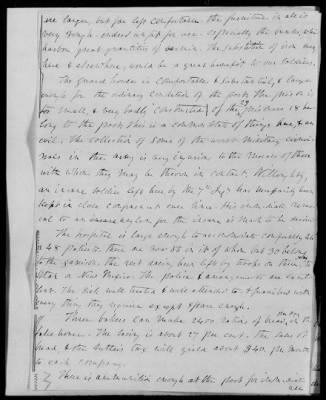 are larger, but far less comfortable. the furniture in all is
very rough & indeed unfit for use. especially the bunks, which
harbor great quantities of vermin. The substitute of iron ones
here & elsewhere, would be a great benefit to our soldiers.
The guard house is comfortable & substantial, & large
enough for the ordinary condition of the post. The prison is
too small, & very badly constructed, of the 23 prisoners 18 be-
long to the post. this is a common state of things here, & an
evil. The collection of some of the worst military crimi-
nals in the army is very injurious to the morals of those
with whom they may be thrown in contact.
an insane soldier left here by the 7th Inf. has
kept in close confinement ever since. His immediate remo-
val to an insane asylum for the insane is much to be desired
The hospital is large enough to accommodate comfortably
48 patients. there are now 38 in it of whom but 30 belong
to the garrison. the rest having been left by troops on their way to
Utah or New Mexico. The police & arrangements are excel-
lent. The sick well treated & well attended to & furnished with
every thing they require except space enough.
Three bakers can make 2400 rations of bread per day in the
bake house. The saving is about 27 per cent. the sales of
bread, & the sutlers tax will yield about $40. per month
to each company.
There is ammunition enough at the post for immediate